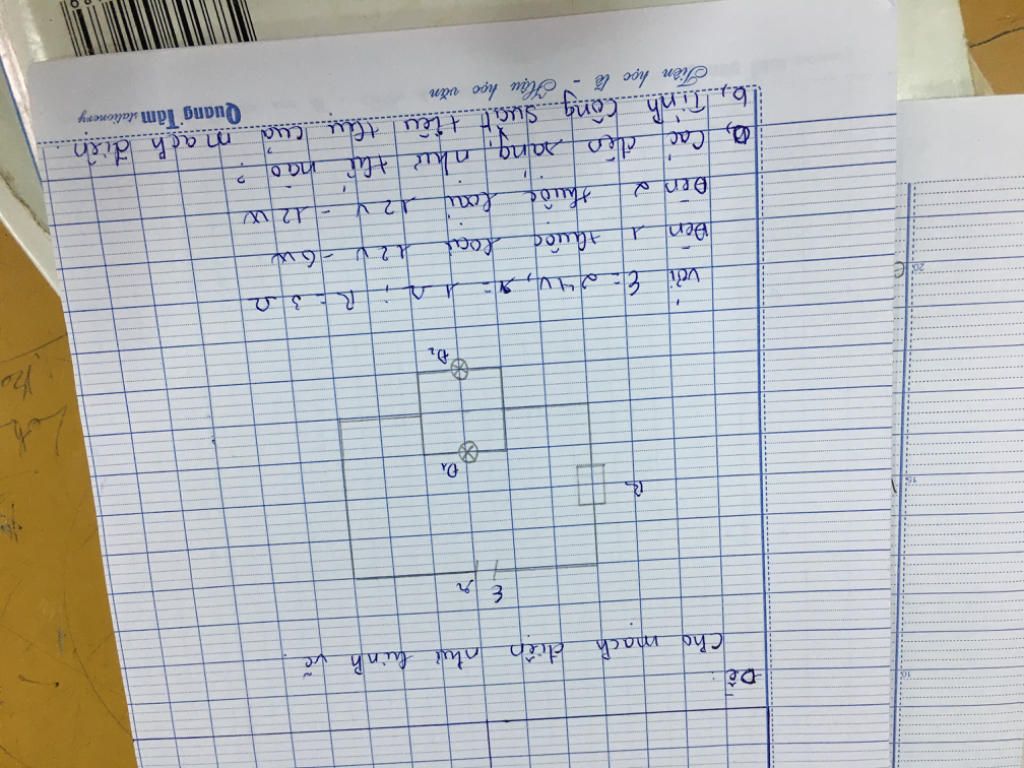 Đề:
Cho mạch điện như hình vẽ.
E
r
R
Đ1
Đ2
Với E = 24V, r = 1 Ω, R = 3 Ω
Đèn 1 thuộc loại 12V - 6W
Đèn 2 thuộc loại 12V - 12W
a, Các đèn sáng như thế nào?
b, Tính công suất tiêu thụ của mạch điện.
Tiên học lễ - Hậu học văn
Quang Tâm stationery
20
15
10